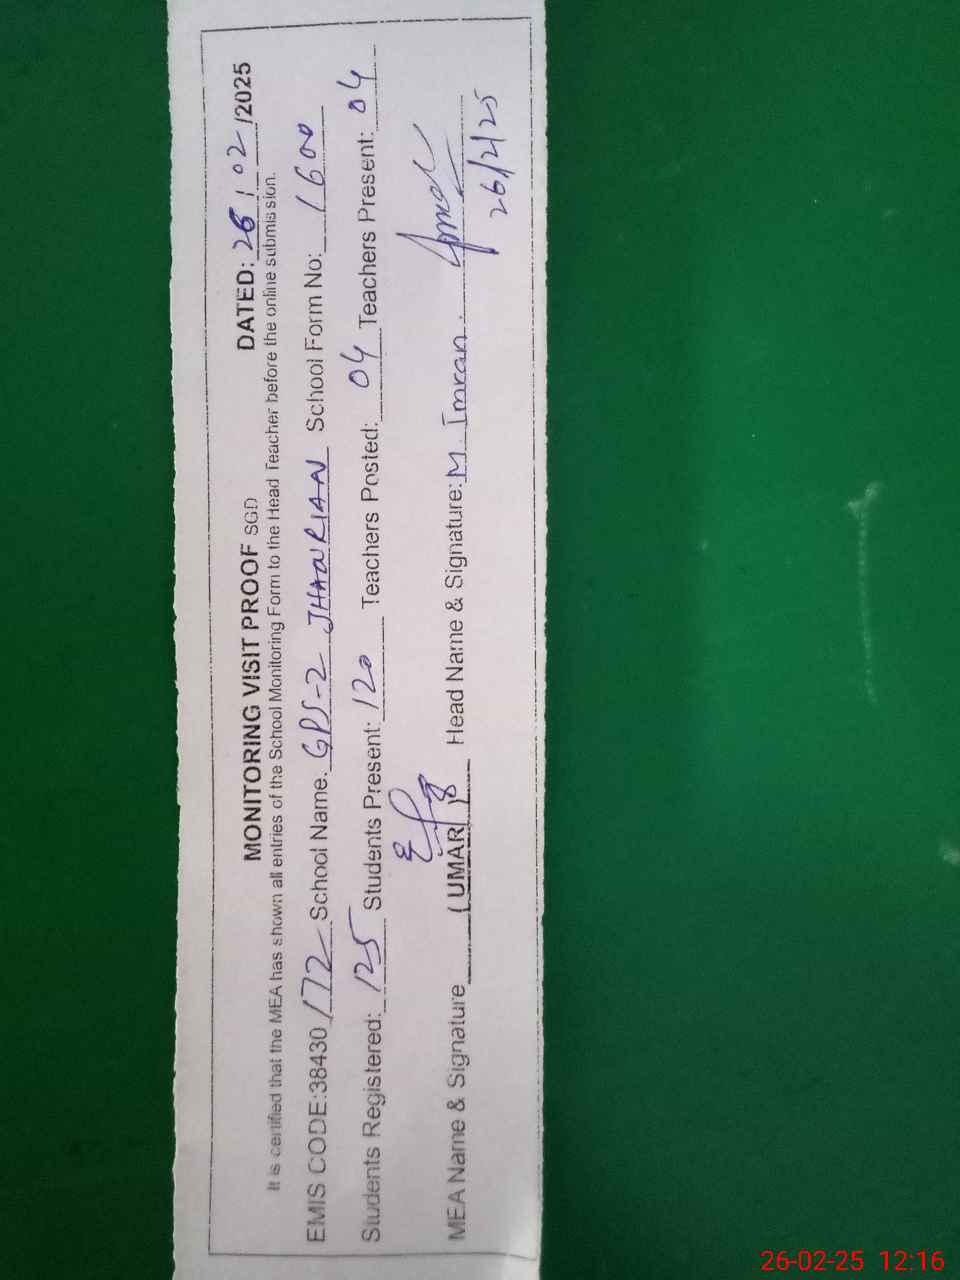 MONITORING VISIT PROOF SGD DATED: 26/02/2025
It is certified that the MEA has shown all entries of the School Monitoring Form to the Head Teacher before the online submission.
EMIS CODE:38430172 School Name: GPS-2 JHAURIAN School Form No: 1600
Students Registered: 125 Students Present: 120 Teachers Posted: 04 Teachers Present: 04
MEA Name & Signature (UMAR) Head Name & Signature: M. Imran.
26/2/25
26-02-25 12:16